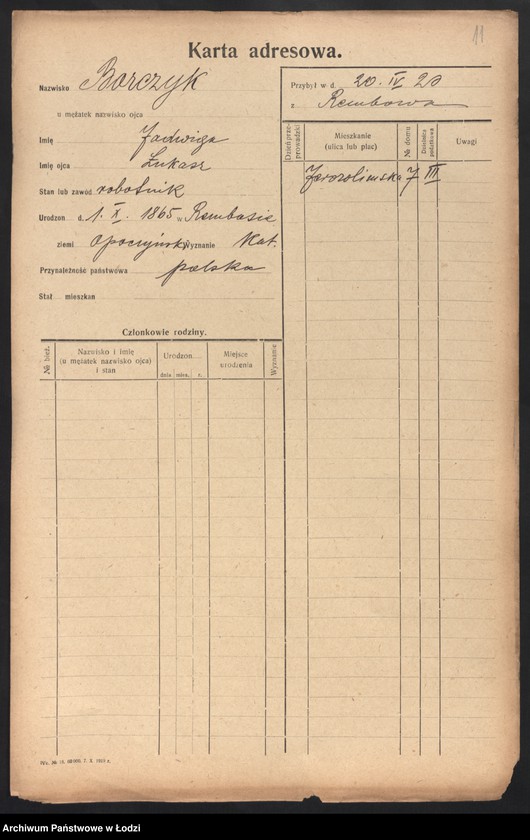 11
Karta adresowa.
Nazwisko Borczyk
u mężatek nazwisko ojca
Imię Jadwiga
Imię ojca Łukasz
Stan lub zawód robotnik
Urodzon d. 1. X. 1865 w Rembasie
ziemi Opoczyńskiej Wyznanie Kat.
Przynależność państwowa polska
Stał mieszkan
Przybył w d. 20. IV 20
z Rembowa
Dzień przeprowadzki
Mieszkanie (ulica lub plac)
№ domu
Dzielnica podatkowa
Uwagi
Jerozolimska 7 III
Członkowie rodziny.
№ bież.
Nazwisko i imię
(u mężatek nazwisko ojca)
i stan
Urodzon
dnia mies. r.
Miejsce
urodzenia
Wyznanie
Archiwum Państwowe w Łodzi